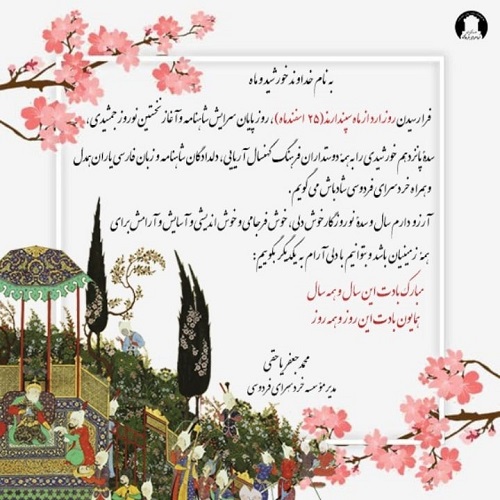 به نام خداوند خورشید و ماه
فرارسیدن روز ارد از ماه سپندارمذ (۲۵ اسفندماه)، روز پایان سرایش شاهنامه و آغاز نخستین نوروز جمشیدی،
سدهٔ پانزدهم خورشیدی را به همه دوستداران فرهنگ کهنسال آریایی، دلدادگان شاهنامه و زبان فارسی یاران همدل
و همراه خردسرای فردوسی شادباش می‌گویم.
آرزو دارم سال و سدهٔ نو روزگار خوش دلی، خوش فرجامی و خوش اندیشی و آسایش و آرامش برای
همهٔ زمینیان باشد و توانیم با دلی آرام به یکدیگر بگوییم:
مبارک بادت این سال و همه سال
همایون بادت این روز و همه روز
محمدجعفر یاحقی
مدیر مؤسسه خردسرای فردوسی